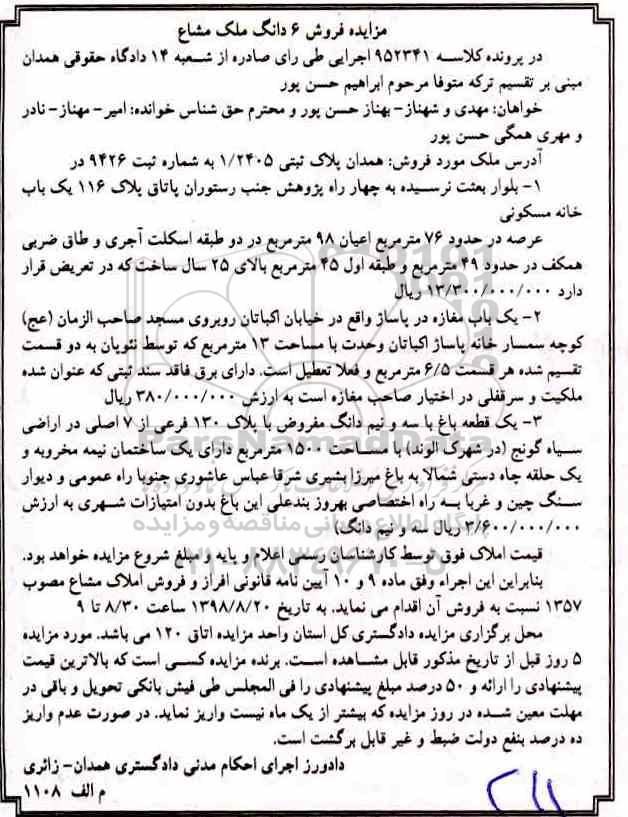 مزایده فروش ۶ دانگ ملک مشاع
در پرونده کلاسه ۹۵۲۳۴۱ اجرایی طی رای صادره از شعبه ۱۴ دادگاه حقوقی همدان
مبنی بر تقسیم ترکه متوفا مرحوم ابراهیم حسن پور
خواهان: مهدی و شهناز- بهناز حسن پور و محترم حق شناس خوانده: امیر- مهناز- نادر
و مهری همگی حسن پور
آدرس ملک مورد فروش: همدان پلاک ثبتی ۱/۲۴۰۵ به شماره ثبت ۹۴۲۶ در
۱- بلوار بعثت نرسیده به چهار راه پژوهش جنب رستوران پاتاق پلاک ۱۱۶ یک باب
خانه مسکونی
عرصه در حدود ۷۶ مترمربع اعیان ۹۸ مترمربع در دو طبقه اسکلت آجری و طاق ضربی
همکف در حدود ۴۹ مترمربع و طبقه اول ۴۵ مترمربع بالای ۲۵ سال ساخت که در تعریض قرار
دارد ۱۳/۳۰۰/۰۰۰/۰۰۰ ریال
۲- یک باب مغازه در پاساژ واقع در خیابان اکباتان روبروی مسجد صاحب الزمان (عج)
کوچه سمسار خانه پاساژ اکباتان وحدت با مساحت ۱۳ مترمربع که توسط نئوپان به دو قسمت
تقسیم شده هر قسمت ۶/۵ مترمربع و فعلا تعطیل است. دارای برق فاقد سند ثبتی که عنوان شده
ملکیت و سرقفلی در اختیار صاحب مغازه است به ارزش ۳۸۰/۰۰۰/۰۰۰ ریال
۳- یک قطعه باغ با سه و نیم دانگ مفروض با پلاک ۱۳۰ فرعی از ۷ اصلی در اراضی
سیاه گونج (در شهرک الوند) با مساحت ۱۵۰۰ مترمربع دارای یک ساختمان نیمه مخروبه و
یک حلقه چاه دستی شمالا به باغ میرزا بشیری شرقا عباس عاشوری جنوبا راه عمومی و دیوار
سنگ چین و غربا به راه اختصاصی بهروز بندعلی این باغ بدون امتیازات شهری به ارزش
۳/۶۰۰/۰۰۰/۰۰۰ ریال سه و نیم دانگ)
قیمت املاک فوق توسط کارشناسان رسمی اعلام و پایه و مبلغ شروع مزایده خواهد بود.
بنابراین این اجراء وفق ماده ۹ و ۱۰ آیین نامه قانونی افراز و فروش املاک مشاع مصوب
۱۳۵۷ نسبت به فروش آن اقدام می نماید. به تاریخ ۱۳۹۸/۸/۲۰ ساعت ۸/۳۰ تا ۹
محل برگزاری مزایده دادگستری کل استان واحد مزایده اتاق ۱۲۰ می باشد. مورد مزایده
۵ روز قبل از تاریخ مذکور قابل مشاهده است. برنده مزایده کسی است که بالاترین قیمت
پیشنهادی را ارائه و ۵۰ درصد مبلغ پیشنهادی را فی المجلس طی فیش بانکی تحویل و باقی در
مهلت معین شده در روز مزایده که بیشتر از یک ماه نیست واریز نماید. در صورت عدم واریز
ده درصد بنفع دولت ضبط و غیر قابل برگشت است.
دادورز اجرای احکام مدنی دادگستری همدان- زائری
م الف ۱۱۰۸